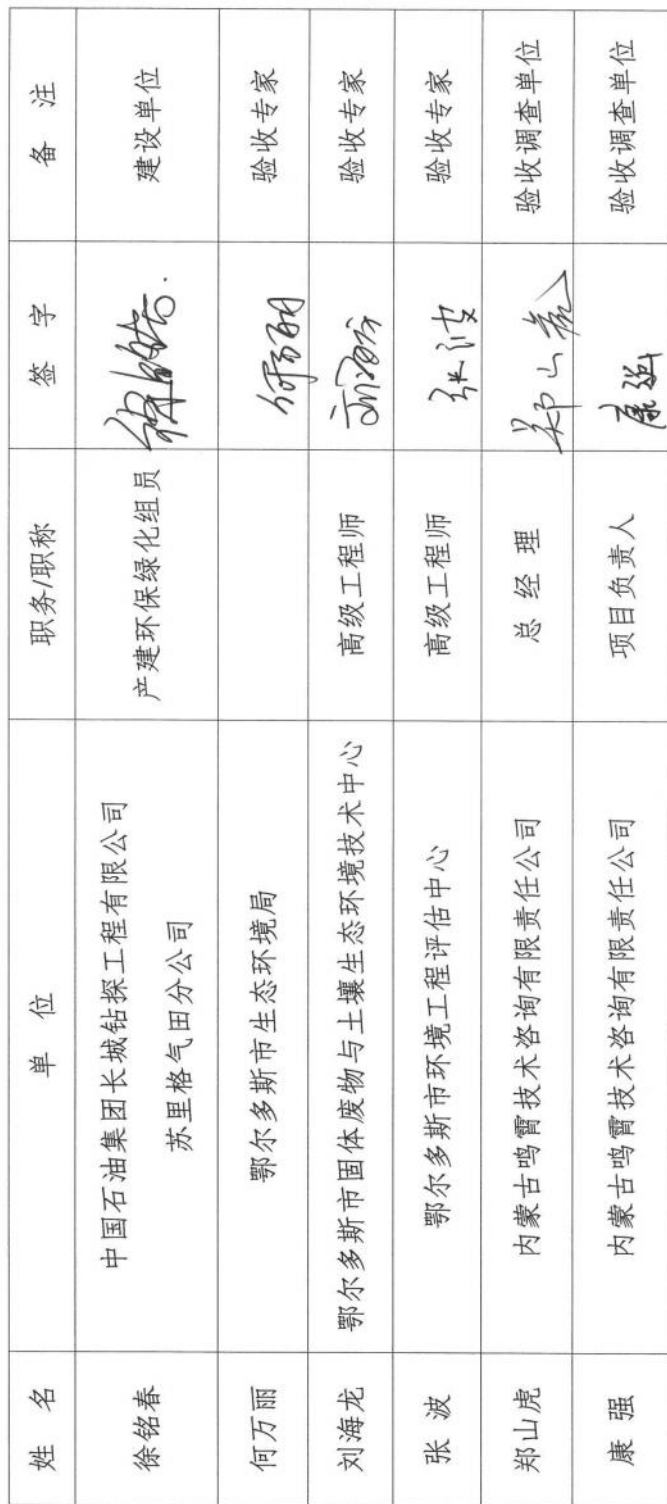 姓 名 单 位 职务/职称 签 字 备 注
徐铭春 中国石油集团长城钻探工程有限公司 产建环保绿化组员 建设单位
苏里格气田分公司
何万丽 鄂尔多斯市生态环境局 何万丽 验收专家
刘海龙 鄂尔多斯市固体废物与土壤生态环境技术中心 高级工程师 验收专家
张 波 鄂尔多斯市环境工程评估中心 高级工程师 张波 验收专家
郑山虎 内蒙古鸣霄技术咨询有限责任公司 总 经 理 郑山虎 验收调查单位
康 强 内蒙古鸣霄技术咨询有限责任公司 项目负责人 康强 验收调查单位